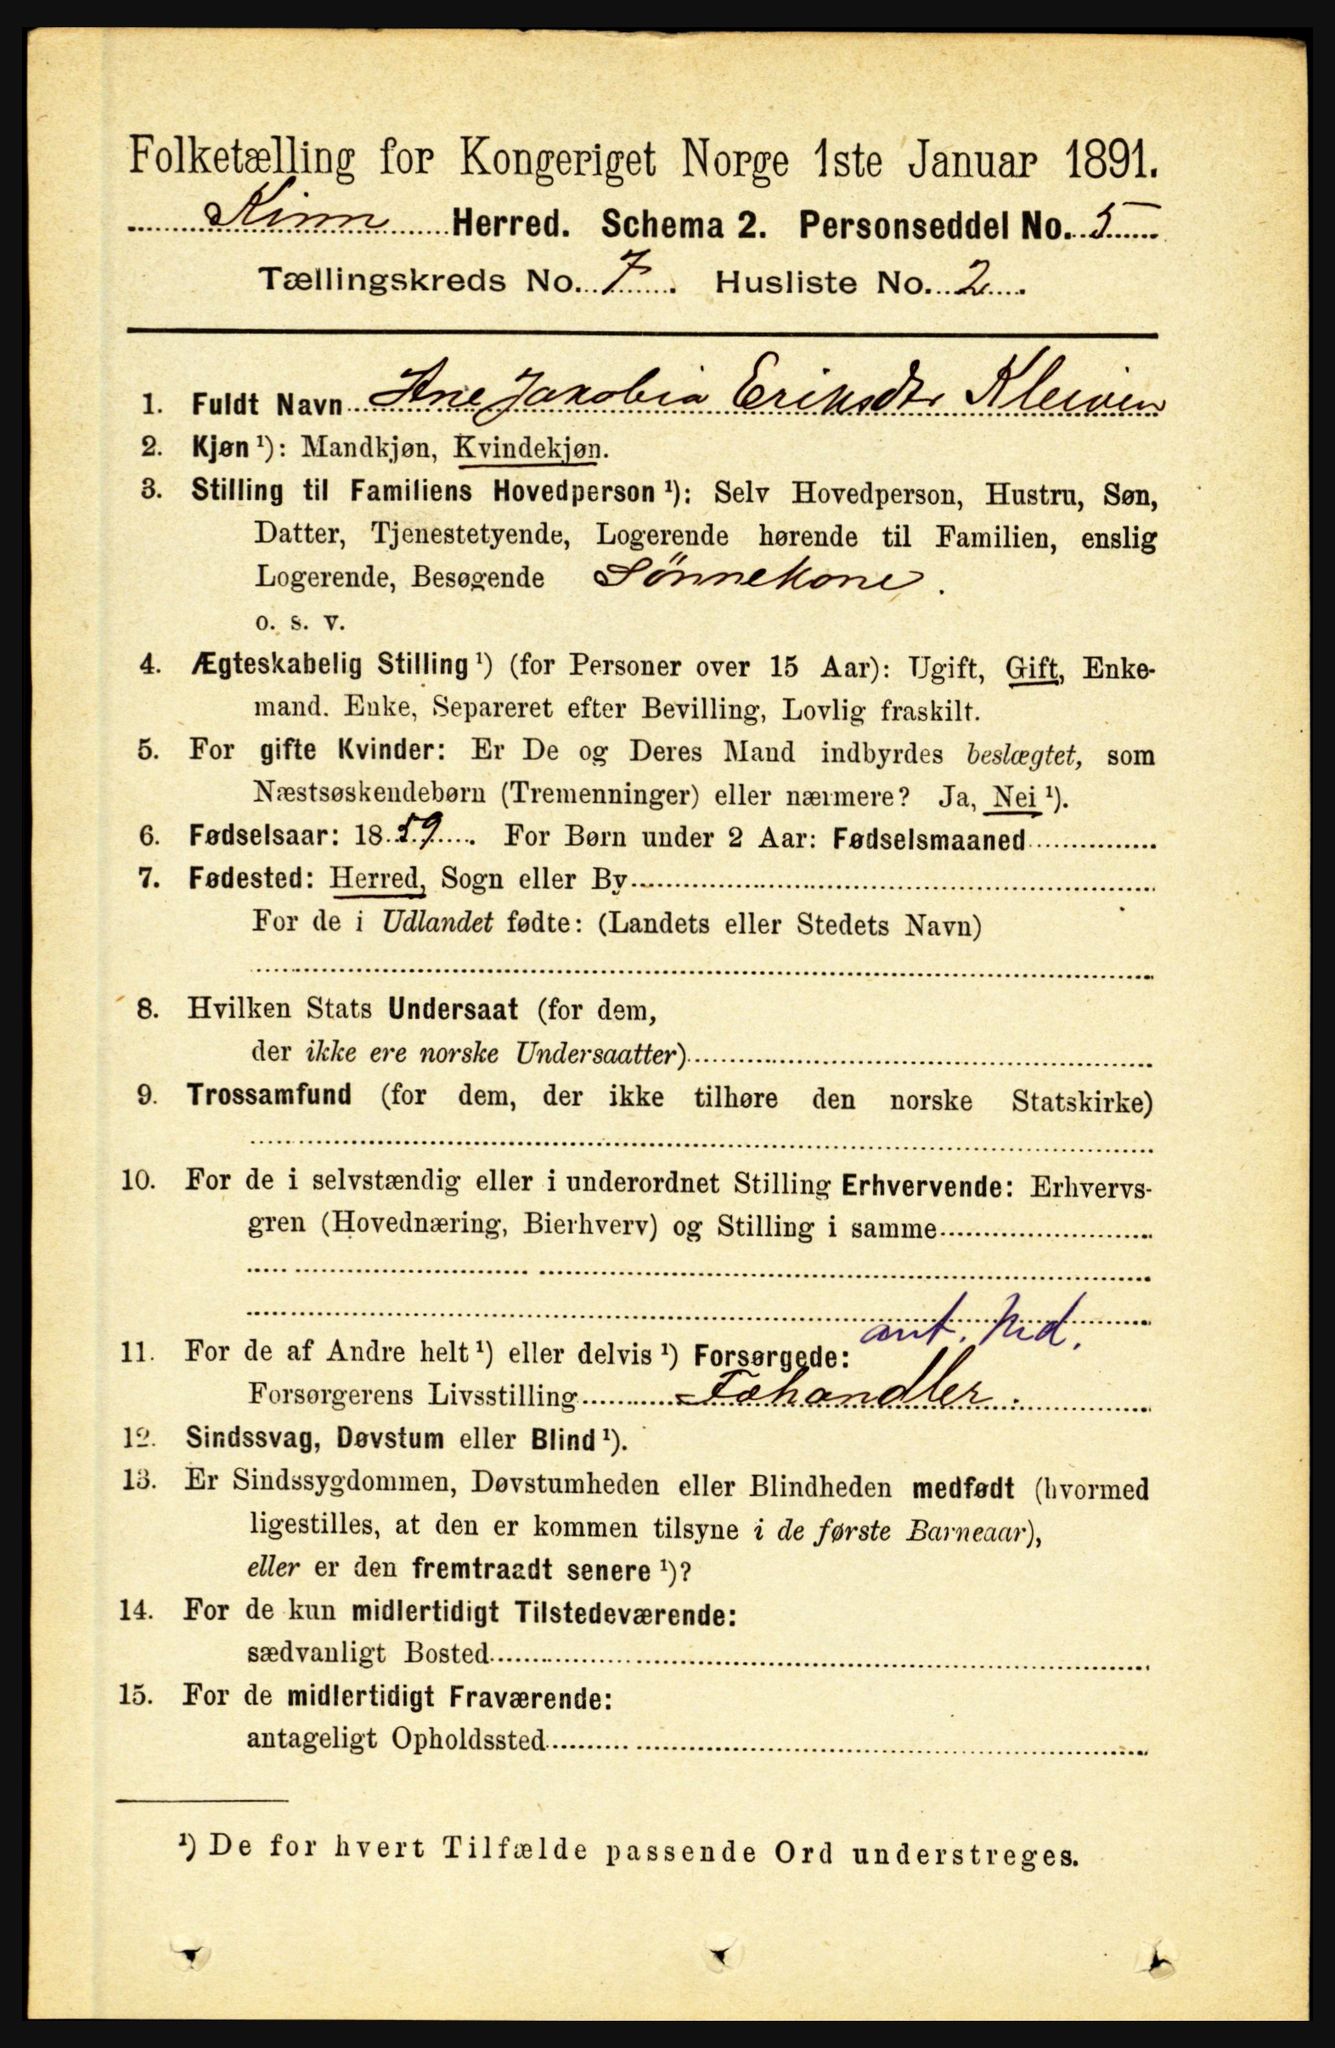 Folketælling for Kongeriget Norge 1ste Januar 1891.
Kinn Herred. Schema 2. Personseddel No. 5
Tællingskreds No. 7. Husliste No. 2.
1. Fuldt Navn Ane Jakobia Eriksdtr Kleiven
2. Kjøn ¹): Mandkjøn, Kvindekjøn.
3. Stilling til Familiens Hovedperson ¹): Selv Hovedperson, Hustru, Søn,
Datter, Tjenestetyende, Logerende hørende til Familien, enslig
Logerende, Besøgende Sønnekone.
o. s. v.
4. Ægteskabelig Stilling ¹) (for Personer over 15 Aar): Ugift, Gift, Enke-
mand. Enke, Separeret efter Bevilling, Lovlig fraskilt.
5. For gifte Kvinder: Er De og Deres Mand indbyrdes beslægtet, som
Næstsøskendebørn (Tremenninger) eller nærmere? Ja, Nei ¹).
6. Fødselsaar: 1859. For Børn under 2 Aar: Fødselsmaaned
7. Fødested: Herred, Sogn eller By
For de i Udlandet fødte: (Landets eller Stedets Navn)
8. Hvilken Stats Undersaat (for dem,
der ikke ere norske Undersaatter)
9. Trossamfund (for dem, der ikke tilhøre den norske Statskirke)
10. For de i selvstændig eller i underordnet Stilling Erhvervende: Erhvervs-
gren (Hovednæring, Bierhverv) og Stilling i samme
ant. hd.
11. For de af Andre helt ¹) eller delvis ¹) Forsørgede:
Forsørgerens Livsstilling Fæhandler.
12. Sindssvag, Døvstum eller Blind ¹).
13. Er Sindssygdommen, Døvstumheden eller Blindheden medfødt (hvormed
ligestilles, at den er kommen tilsyne i de første Barneaar),
eller er den fremtraadt senere ¹)?
14. For de kun midlertidigt Tilstedeværende:
sædvanligt Bosted
15. For de midlertidigt Fraværende:
antageligt Opholdssted
¹) De for hvert Tilfælde passende Ord understreges.